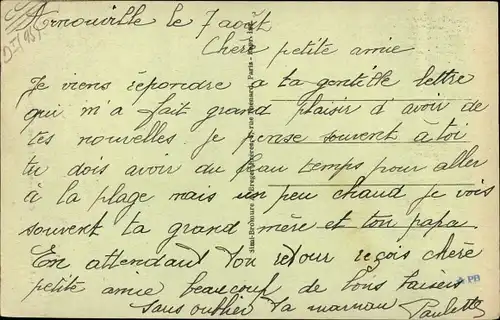 Arnouville le 7 août
Chère petite amie
Je viens répondre a ta gentille lettre
qui m'a fait grand plaisir d'avoir de
tes nouvelles. je pense souvent à toi
tu dois avoir du beau temps pour aller
à la plage mais un peu chaud je vois
souvent ta grand mère et ton papa
En attendant ton retour reçois chère
petite amie beaucoup de bons baisers
sans oublier ta maman Paulette